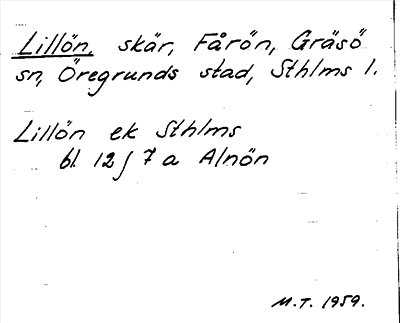 Lillön, skär, Fårön, Gräsö
sn, Öregrunds stad, Sthlms l.
Lillön ek Sthlms
bl. 12 J 7 a Alnön
M.T. 1959.